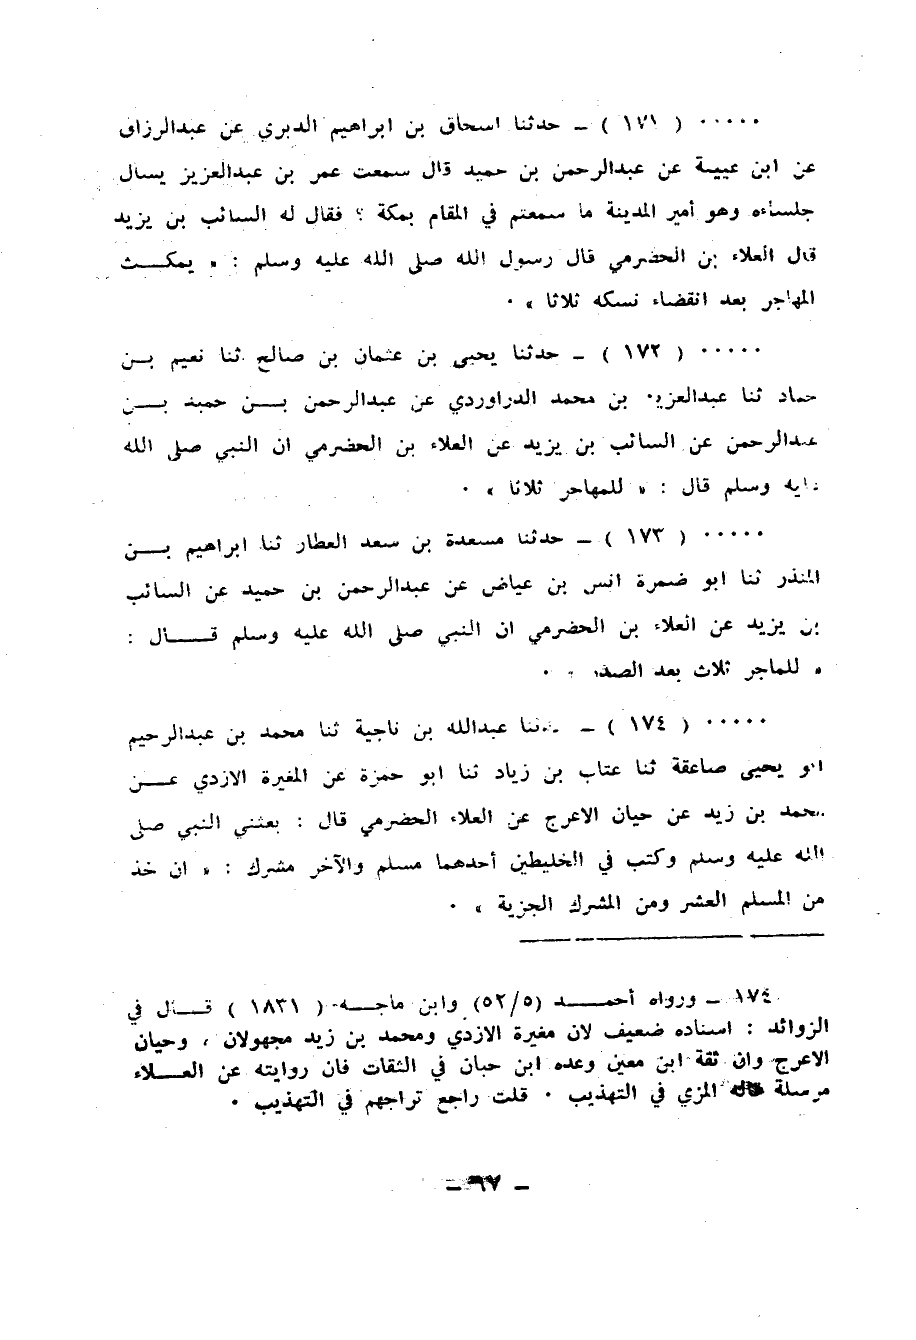 ..... ( ١٧١ ) ـ حدثنا اسحاق بن ابراهيم الدبري عن عبدالرزاق
عن ابن عيينة عن عبدالرحمن بن حميد قال سمعت عمر بن عبدالعزيز يسال
جلساءه وهو أمير المدينة ما سمعتم في المقام بمكة ؟ فقال له السائب بن يزيد
قال العلاء بن الحضرمي قال رسول الله صلى الله عليه وسلم : « يمكـــث
المهاجر بعد انقضاء نسكه ثلاثا » .
..... ( ١٧٢ ) ـ حدثنا يحيى بن عثمان بن صالح ثنا نعيم بـن
حماد ثنا عبدالعزيز بن محمد الدراوردي عن عبدالرحمن بـــن حميد بـــن
عبدالرحمن عن السائب بن يزيد عن العلاء بن الحضرمي ان النبي صلى الله
عليه وسلم قال : « للمهاجر ثلاثا » .
..... ( ١٧٣ ) ـ حدثنا مسعدة بن سعد العطار ثنا ابراهيم بـــن
المنذر ثنا ابو ضمرة انس بن عياض عن عبدالرحمن بن حميد عن السائب
بن يزيد عن العلاء بن الحضرمي ان النبي صلى الله عليه وسلم قـــــال :
« للماجر ثلاث بعد الصدر » .
..... ( ١٧٤ ) ـ حدثنا عبدالله بن ناجية ثنا محمد بن عبدالرحيم
ابو يحيى صاعقة ثنا عتاب بن زياد ثنا ابو حمزة عن المغيرة الازدي عـــن
محمد بن زيد عن حيان الاعرج عن العلاء الحضرمي قال : بعثني النبي صلى
الله عليه وسلم وكتب في الخليطين أحدهما مسلم والآخر مشرك : « ان خذ
من المسلم العشر ومن المشرك الجزية » .
١٧٤ ـ ورواه أحمـــــد (٥٢/٥) وابن ماجـــه ( ١٨٣١ ) قـــال في
الزوائد : اسناده ضعيف لان مغيرة الازدي ومحمد بن زيد مجهولان ، وحيان
الاعرج وان ثقة ابن معين وعده ابن حبان في الثقات فان روايته عن العـــلاء
مرسلة قاله المزي في التهذيب . قلت راجع تراجهم في التهذيب .
ـ ٩٧ ـ